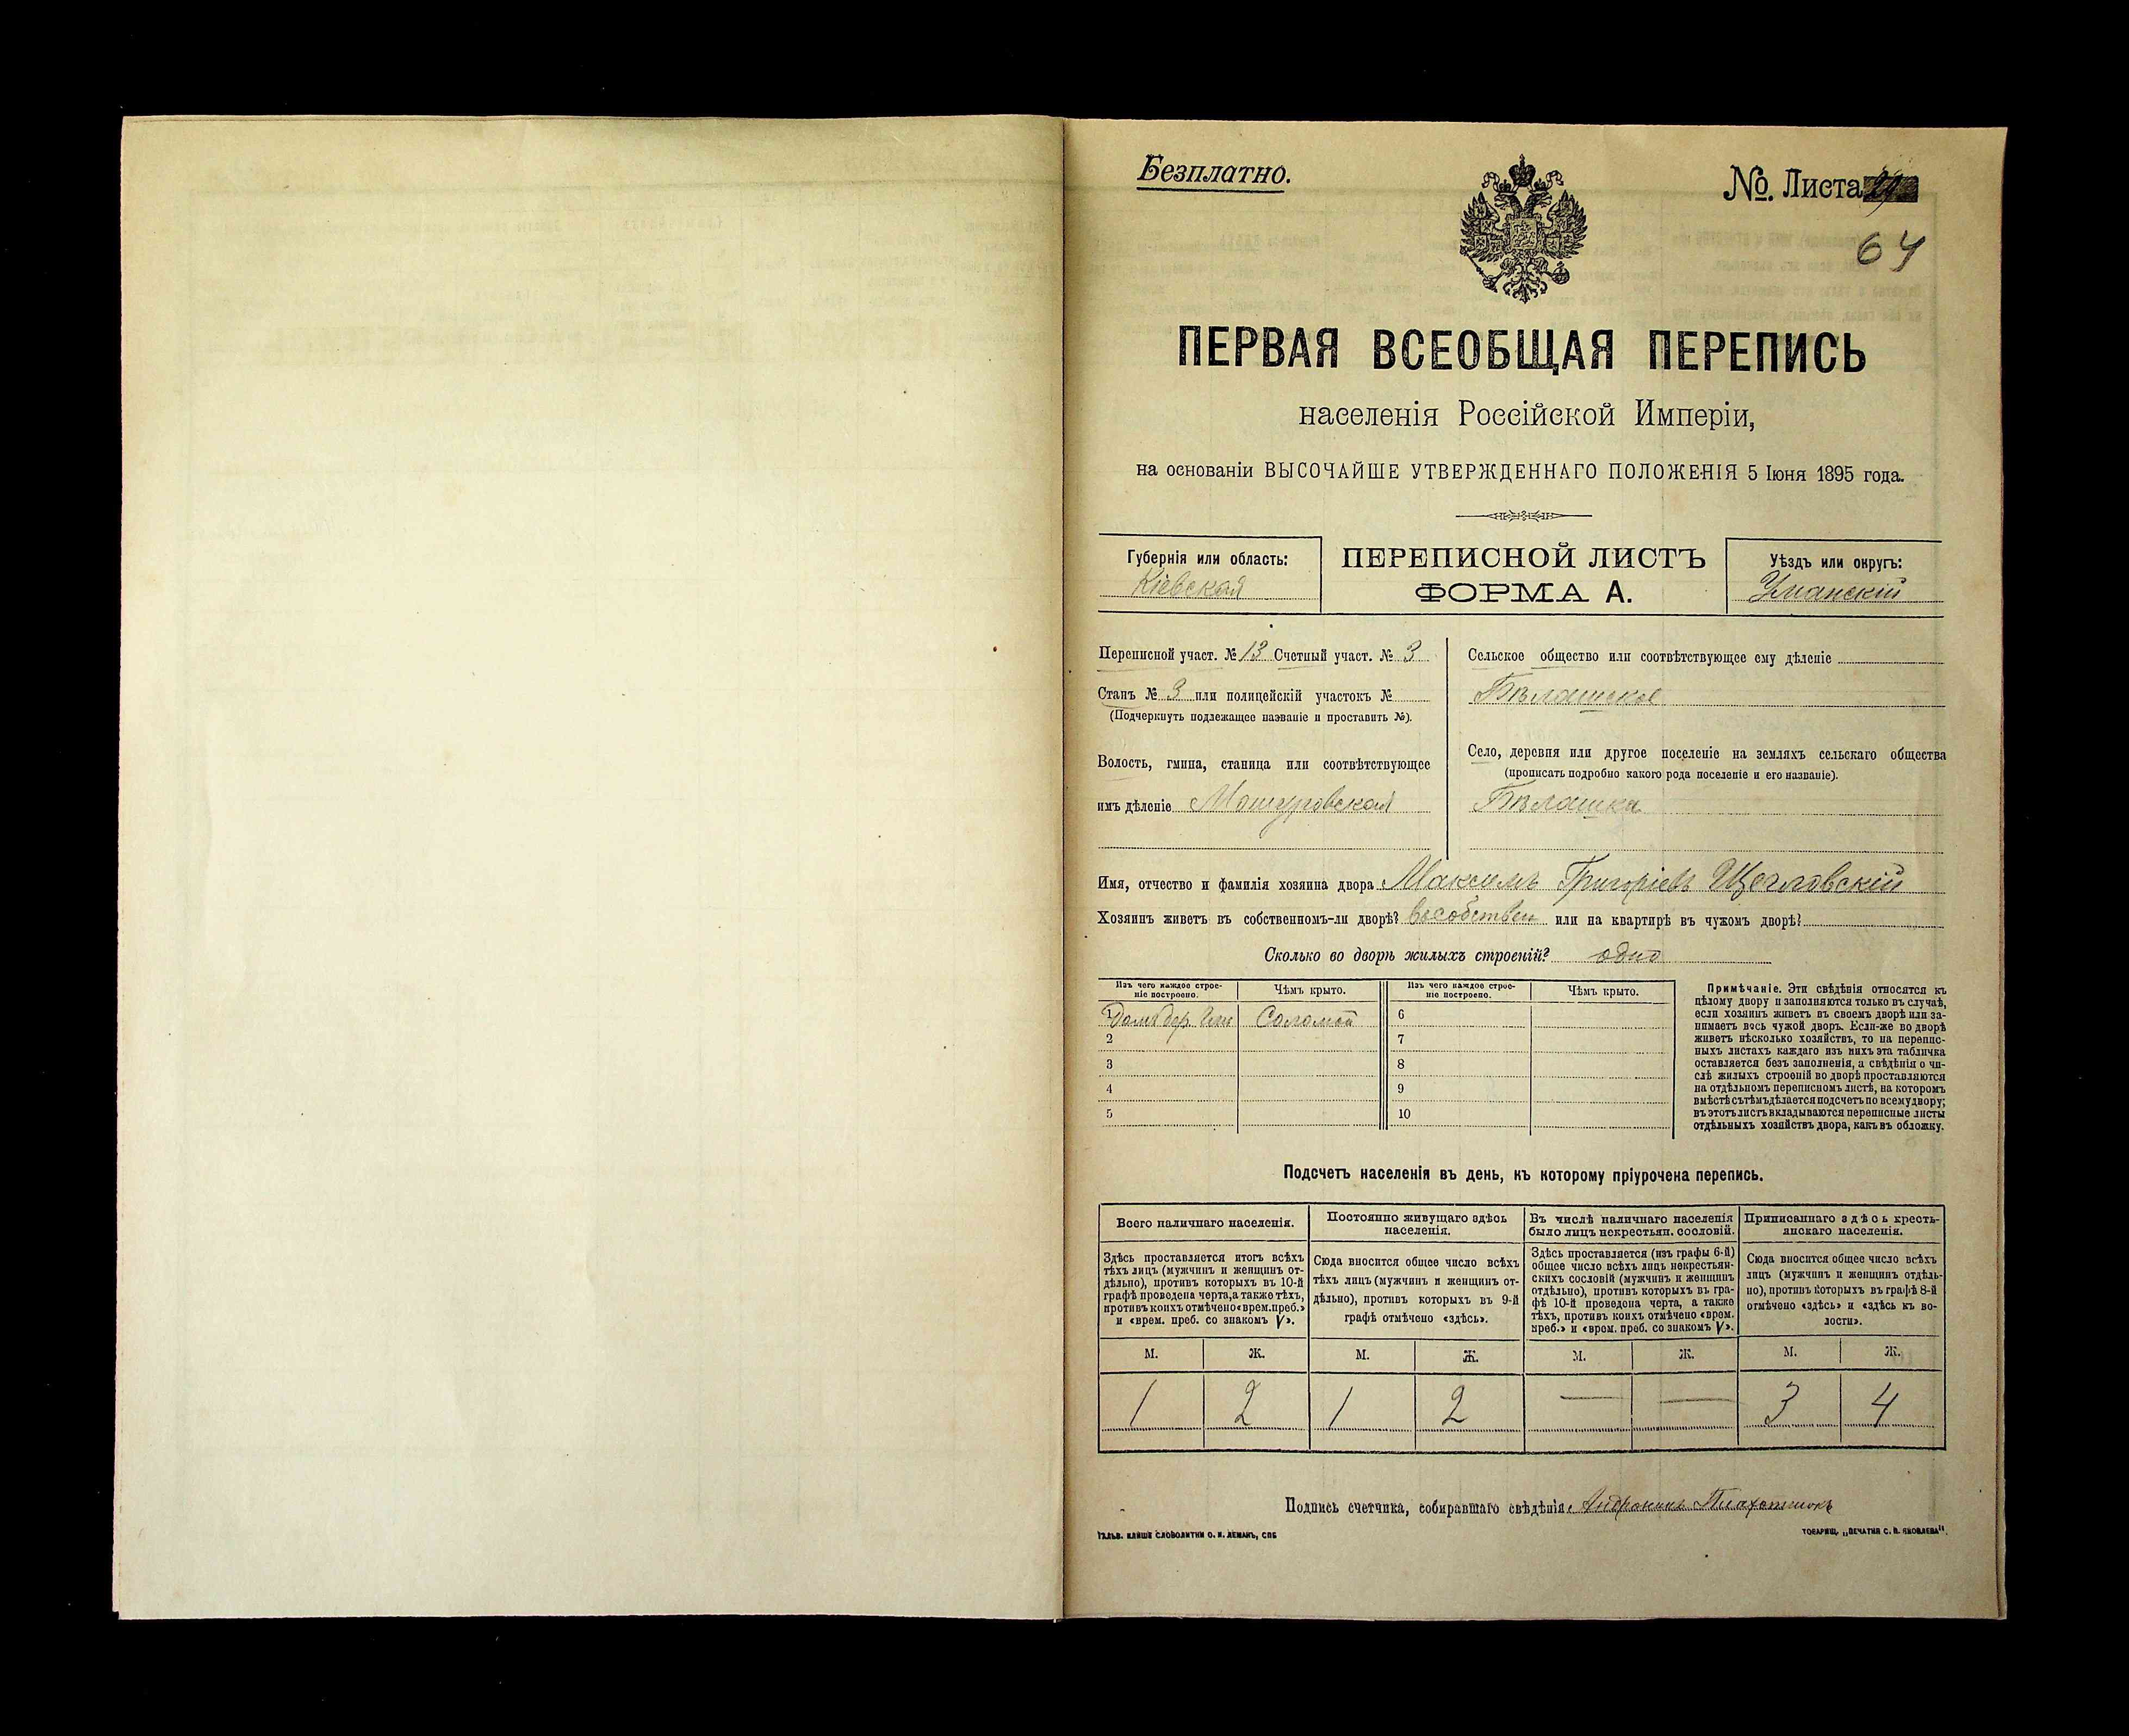 Безплатно.
№ Листа
64
ПЕРВАЯ ВСЕОБЩАЯ ПЕРЕПИСЬ
населенія Россійской Имперіи,
на основаніи ВЫСОЧАЙШЕ УТВЕРЖДЕННАГО ПОЛОЖЕНІЯ 5 Іюня 1895 года.
Губернія или область:
Кіевская
ПЕРЕПИСНОЙ ЛИСТЪ
ФОРМА А.
Уѣздъ или округъ:
Уманскій
Переписной участ. № 13 Счетный участ. № 3
Станъ № 3 или полицейскій участокъ №
(Подчеркнуть подлежащее названіе и проставить №).
Волость, гмина, станица или соотвѣтствующее
имъ дѣленіе Мошуровская
Сельское общество или соотвѣтствующее ему дѣленіе
Бѣлашское
Село, деревня или другое поселеніе на земляхъ сельскаго общества
(прописать подробно какого рода поселеніе и его названіе).
Бѣлашка
Имя, отчество и фамилія хозяина двора Максимъ Григоріевъ Щегловскій
Хозяинъ живетъ въ собственномъ-ли дворѣ? въ собствен или на квартирѣ въ чужомъ дворѣ?
Сколько во дворѣ жилыхъ строеній? одно
Изъ чего каждое строе-
ніе построено.
Чѣмъ крыто.
Изъ чего каждое строе-
ніе построено.
Чѣмъ крыто.
1 Домъ дер. Соломой 6
2 7
3 8
4 9
5 10
Примѣчаніе. Эти свѣдѣнія относятся къ
цѣлому двору и заполняются только въ случаѣ,
если хозяинъ живетъ въ своемъ дворѣ или за-
нимаетъ весь чужой дворъ. Если-же во дворѣ
живетъ нѣсколько хозяйствъ, то на перепис-
ныхъ листахъ каждаго изъ нихъ эта табличка
оставляется безъ заполненія, а свѣдѣнія о чи-
слѣ жилыхъ строеній во дворѣ проставляются
на отдѣльномъ переписномъ листѣ, на которомъ
вмѣстѣ съ тѣмъ дѣлается подсчетъ по всему двору;
въ этотъ листъ вкладываются переписные листы
отдѣльныхъ хозяйствъ двора, какъ въ обложку.
Подсчетъ населенія въ день, къ которому пріурочена перепись.
Всего наличнаго населенія.
Здѣсь проставляется итогъ всѣхъ
тѣхъ лицъ (мужчинъ и женщинъ от-
дѣльно), противъ которыхъ въ 10-й
графѣ проведена черта, а также тѣхъ,
противъ коихъ отмѣчено «врем. преб.»
и «врем. преб. со знакомъ V».
Постоянно живущаго здѣсь
населенія.
Сюда вносится общее число всѣхъ
тѣхъ лицъ (мужчинъ и женщинъ от-
дѣльно), противъ которыхъ въ 9-й
графѣ отмѣчено «здѣсь».
Въ числѣ наличнаго населенія
было лицъ некрестьян. сословій.
Здѣсь проставляется (изъ графы 6-й)
общее число всѣхъ лицъ некрестьян-
скихъ сословій (мужчинъ и женщинъ
отдѣльно), противъ которыхъ въ гра-
фѣ 10-й проведена черта, а также
тѣхъ, противъ коихъ отмѣчено «врем.
преб.» и «врем. преб. со знакомъ V».
Приписаннаго здѣсь кресть-
янскаго населенія.
Сюда вносится общее число всѣхъ
лицъ (мужчинъ и женщинъ отдѣль-
но), противъ которыхъ въ графѣ 8-й
отмѣчено «здѣсь» и «здѣсь къ во-
лости».
М. Ж. М. Ж. М. Ж. М. Ж.
1 2 1 2 — — 3 4
Подпись счетчика, собиравшаго свѣдѣнія:
ГАЛЬВ. КЛИШЕ СЛОВОЛИТНИ О. И. ЛЕМАНЪ, СПБ
ТОВАРИЩ. „ПЕЧАТНЯ С. П. ЯКОВЛЕВА".